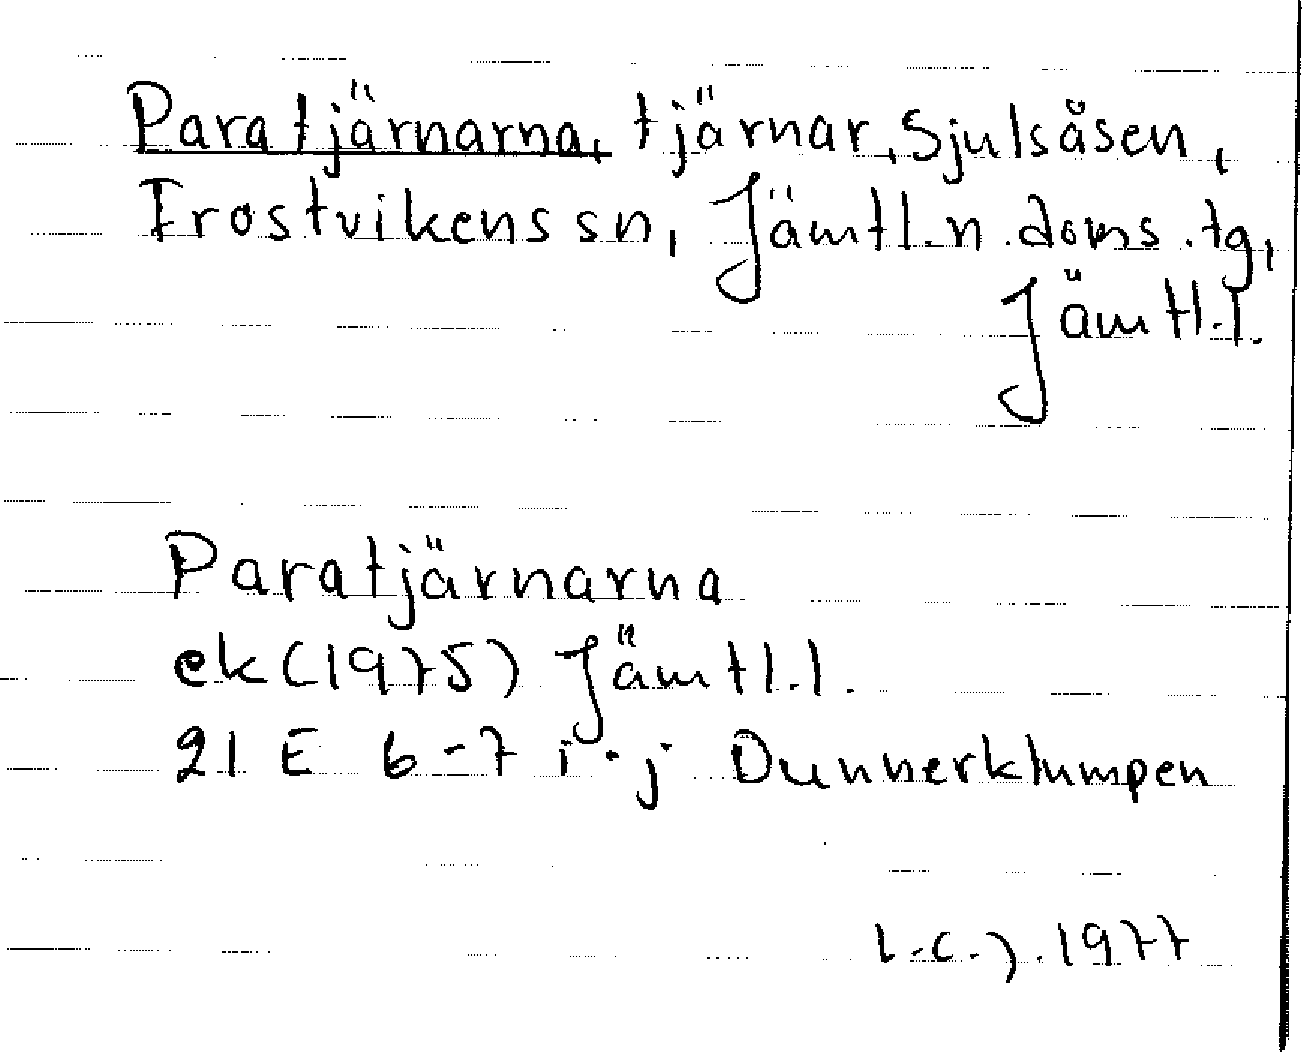 Paratjärnarna, tjärnar, Sjulsåsen,
Frostvikens sn, Jämtl.n.doms.tg,
Jämtl.l.
Paratjärnarna
ek (1975) Jämtl.l.
21 E 6-7 i-j Dunnerklumpen
1977